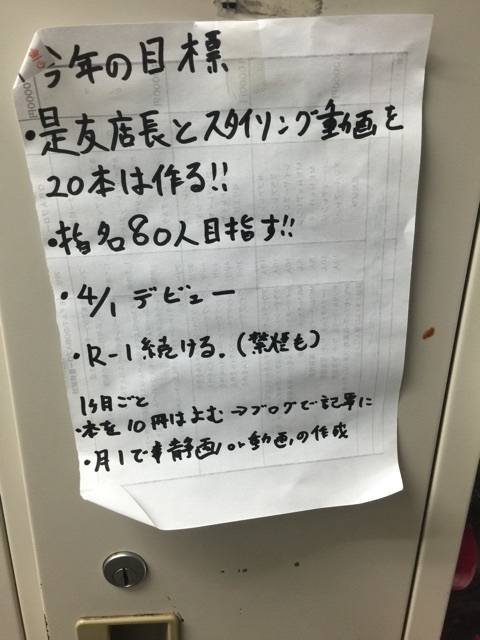 今年の目標
・是友店長とスタイリング動画を
20本は作る!!
・指名80人目指す!!
・4/1 デビュー
・R-1続ける。(禁煙も)
1ヶ月ごと
・本を10冊はよむ→ブログで記事に
・月1で静画or動画の作成